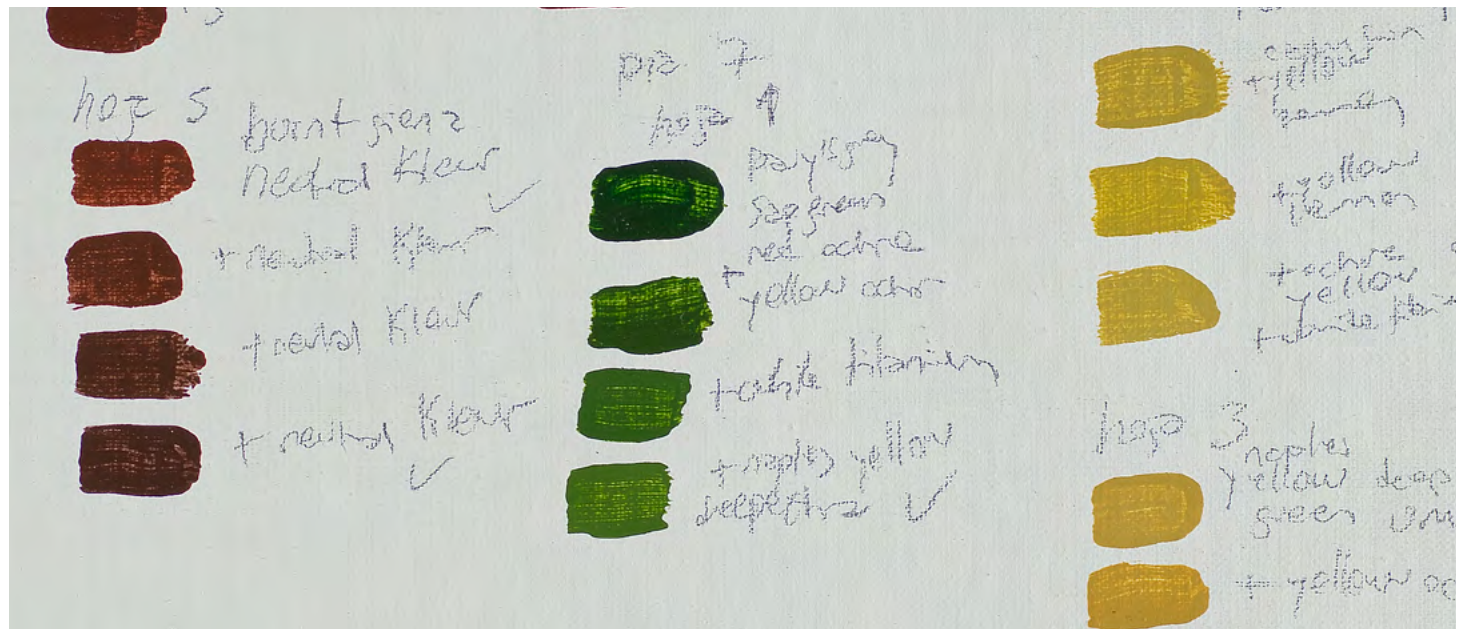 hoja 5
burnt siena
neutral Kleur
+ neutral Kleur
+ neutral Kleur
+ neutral Kleur
pia 7
hoja 1
sap green
red ochre
+ yellow ochr
+ white titanium
+ naples yellow
deep extra
+ yellow
+ yellow
lemon
+ ochre
yellow
+ white
hoja 3
naples
yellow deep
green
+ yellow oc